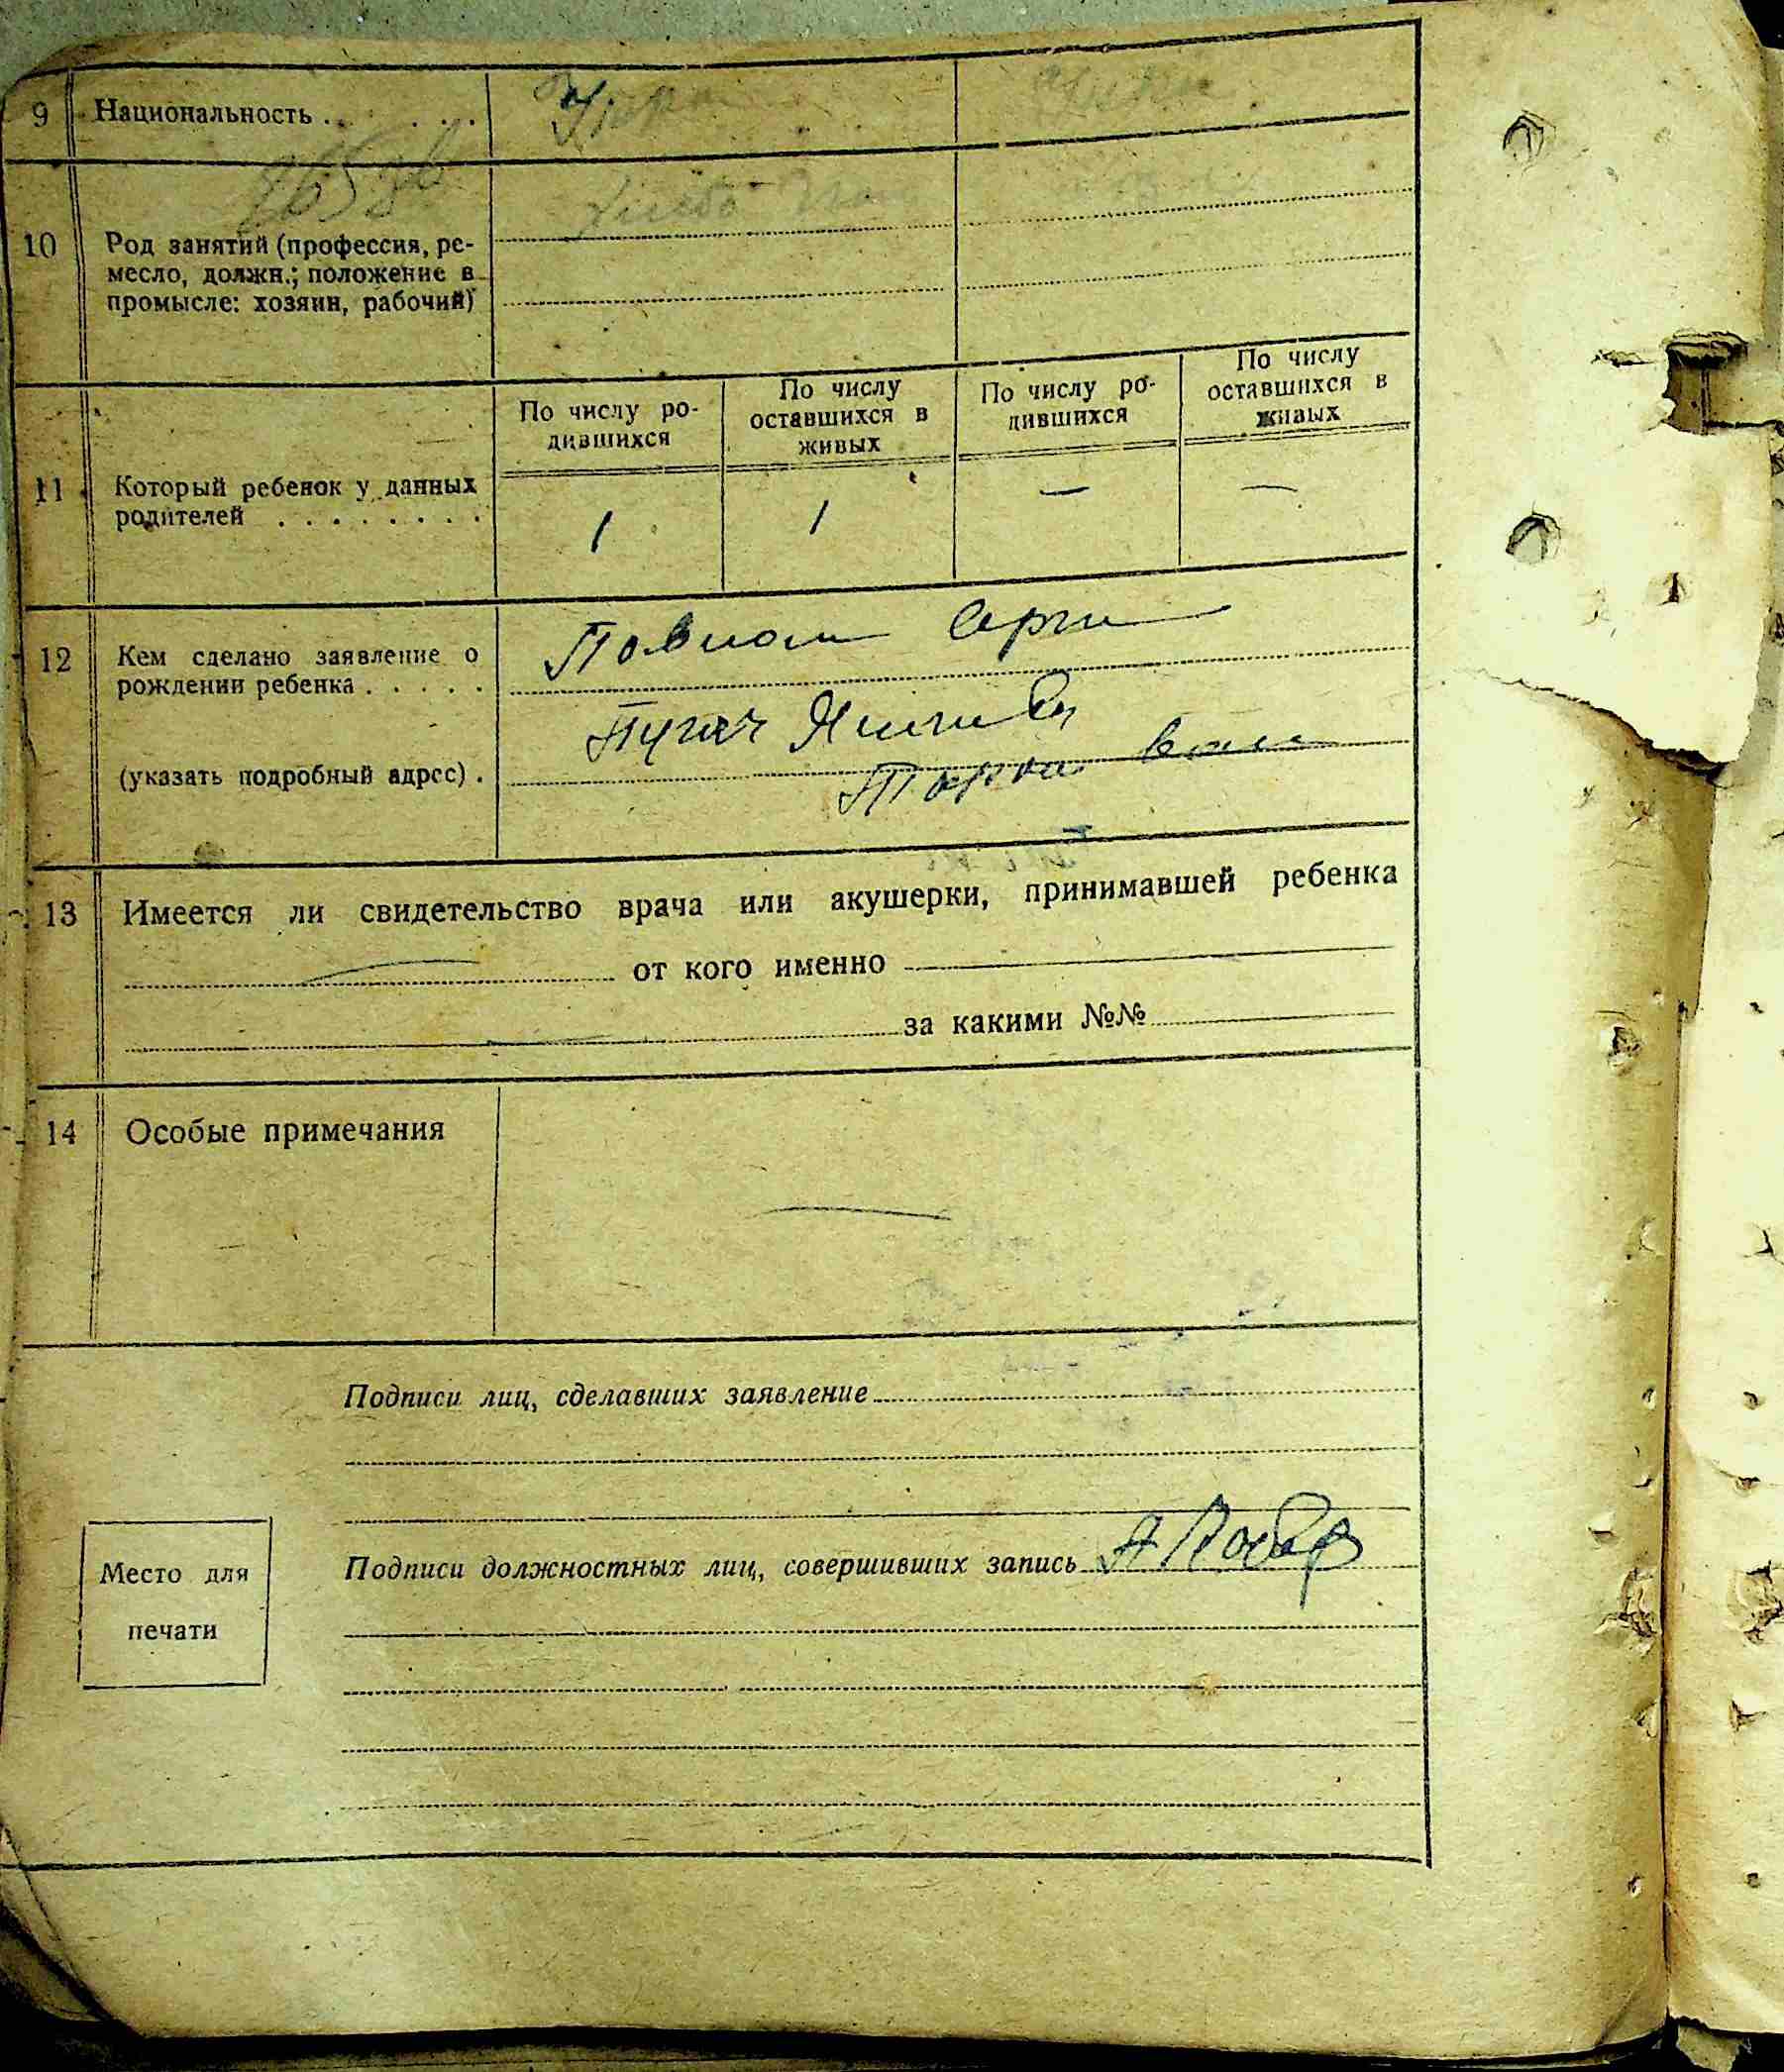 9 Национальность . . . . . .
10 Род занятий (профессия, ре-
месло, должн.; положение в
промысле: хозяин, рабочий)
По числу ро-
дившихся
По числу
оставшихся в
живых
По числу ро-
дившихся
По числу
оставшихся в
живых
11 Который ребенок у данных
родителей . . . . . . . .
1 1 — —
12 Кем сделано заявление о
рождении ребенка . . . . .
Пугач
(указать подробный адрес) .
13 Имеется ли свидетельство врача или акушерки, принимавшей ребенка
— от кого именно
за какими №№
14 Особые примечания
—
Подписи лиц, сделавших заявление
Подписи должностных лиц, совершивших запись
Место для
печати